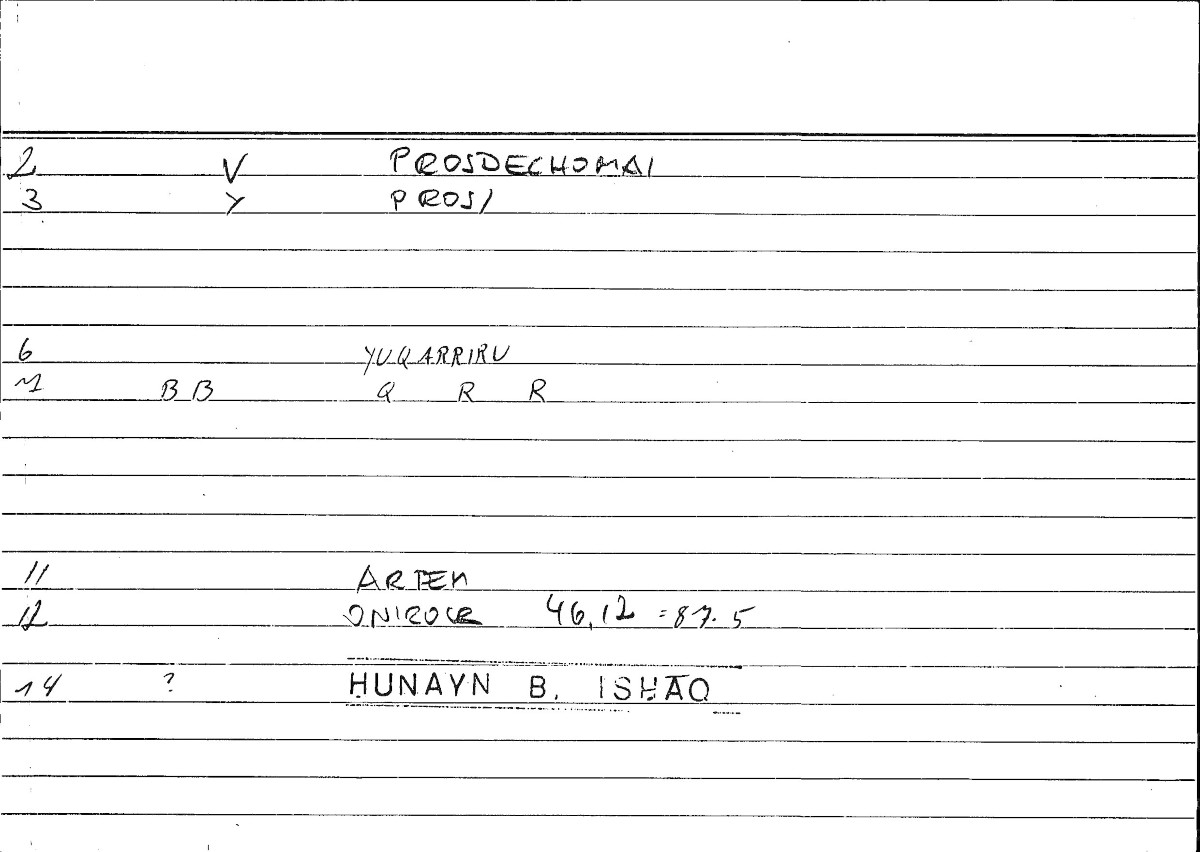 2 V PROSDECHOMAI
3 Y PROS/
6 YUQARRIRU
7 BB Q R R
11 ARTEM
12 ONIROCR 46,12 = 87.5
14 ? HUNAYN B. ISHAQ